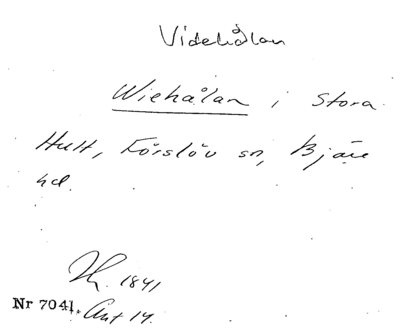 Videhålan
Wiehålan i Stora
Hult, Förslöv sn, Bjäre
hd.
1841
Nr 7041. Akt 14.